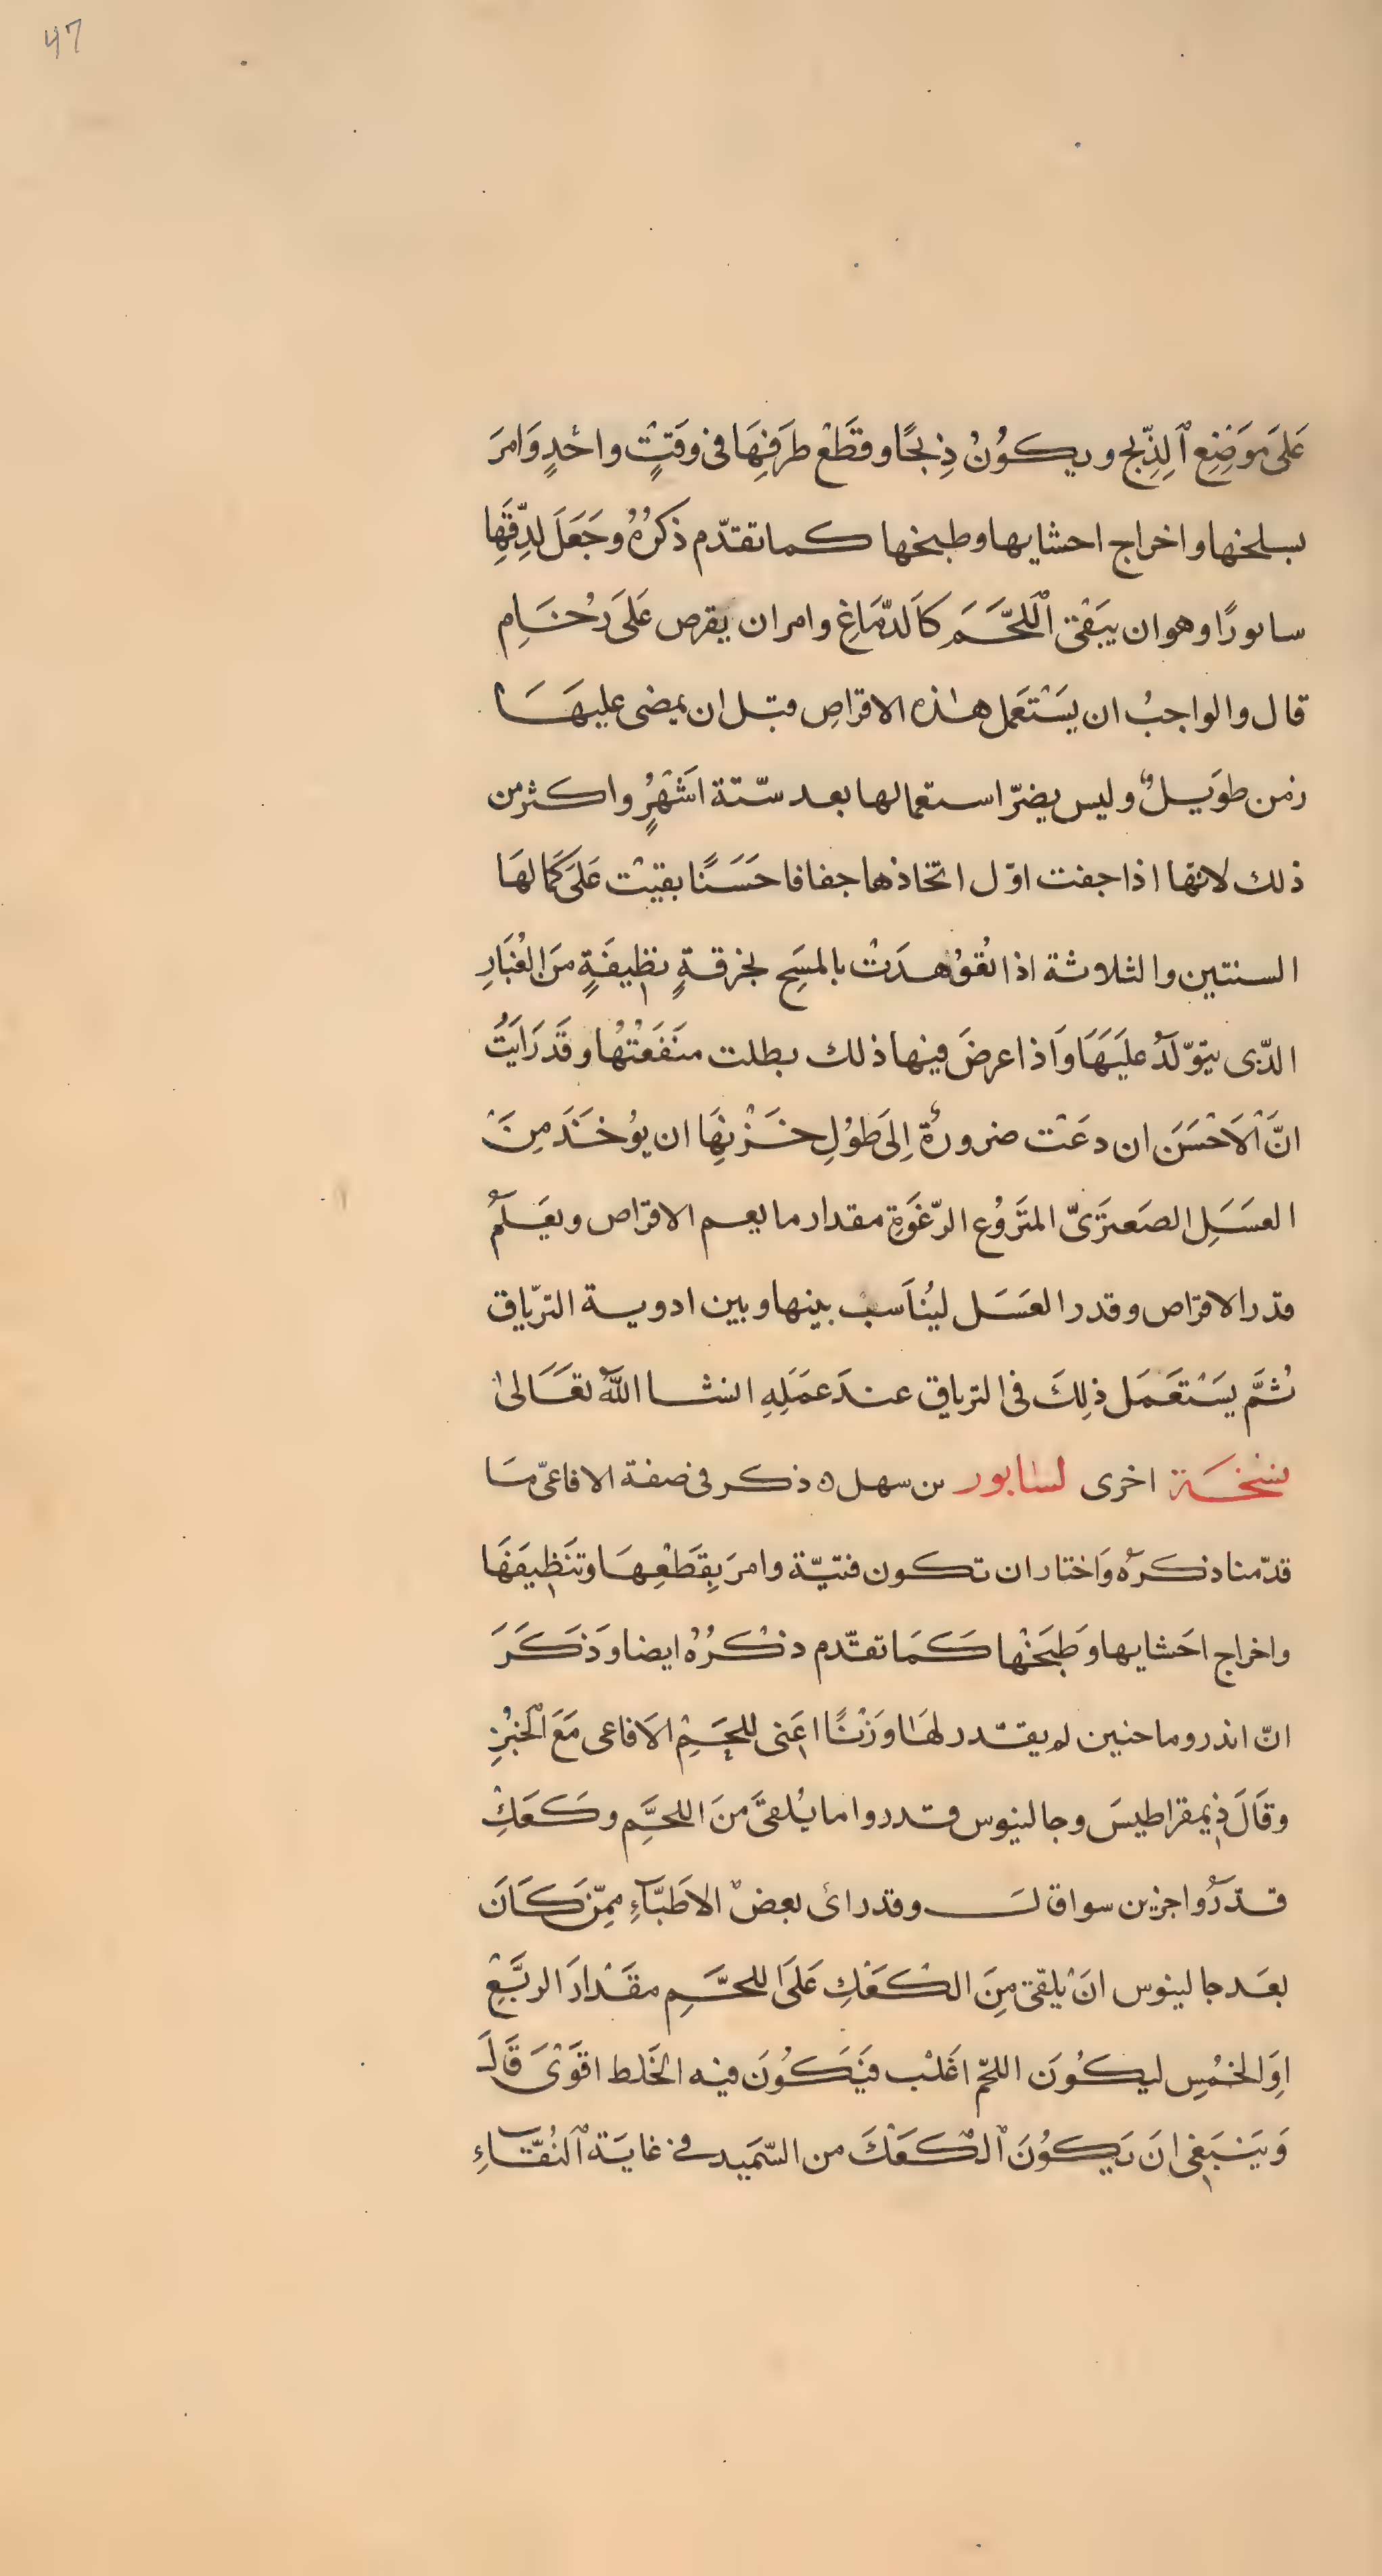 47
عَلىَ مَوَضِعِ ٱلذِّبحِ ويكوُنُ ذِبحًا وقطَعْ طرَفيِهَا فى وقتٍ واحدٍ وَامرَ
بسلخها واخراج احشايها وطبخها كما تقدّم ذكرُهُ وجَعَلَ لدِقّهِا
سابورًا وهو ان يبَقىَ ٱللحَّمَ كاَلدّمَاغِ وامر ان يقرص عَلىَ رُخَامِ
قال والواجبُ ان يسَتعَمل هذه الاقراصِ قبل ان يمضى عليهَا
زمن طويَلٌ وليس يضرّ استعمالها بعد ستّة اشَهُرٍ واكثر من
ذلك لانهّا اذا جفت اوّل اتخاذها جفافا حَسَنًا بقيتْ عَلىَ كمَالهَا
السنتين والثلاثة اذا تُعُوُهدَتْ بالمسَحِ بخرقةٍ نظيفَةٍ منَ الغُبَارِ
الذّى يتوّلدَُ عليَهَا وَاذا عرضَ فيها ذلك بطلت منفَعَتُهُا وقَد رَايَتُ
انَّ ٱلاَحْسَنَ ان دعَتْ ضرورةٌ اِلىَ طوُلِ خَزْنهِاَ ان يوُخَذَ مِنَ
العسَلَِ الصَعترَىّ المنزَوُع الرّغَوَةِ مقدار ما يعم الاقراص ويعَلَمُ
قدر الاقراص وقدر العسَل ليُناَسب بينها وبين ادوية الترّياق
ثمَُّ يسَتعَمَل ذلِكَ فى الترياق عندَ عمَلَهِِ انشا اللهُ تعَاَلىٰ
نسُخَة اخرى لسابور بن سهل ه ذكر فى صفة الافاعىّ مَا
قدّمنا ذكرهُ وَاختار ان تكون فتيّة وامرَ بقِطَعْهِاَ وتنَظيفَهَا
واخراج احَشايها وَطبَخْها كمَا تقدّم ذكرُهُ ايضا وَذكَرَ
انّ اندروماخنين لم يقدّر لهَا وَزْنًا اعَنى للحَمِ الاَفاعى مَعَ الخُبْزِ
وقاَلَ ذيمقراطيسَ وجالينوس قدروا ما يُلقىَ منَ اللحَّمِ وكعَكِ
قدّرَوُا جزين سواقال وقد رائ بعضُ الاَطبَّآءِ ممِّن كاَنَ
بعَد جالينوس انَْ يلقىّ مِنَ الكعَْكِ عَلىَ اللحَّمِ مقَدْارَ الربَّعِ
اوَِ الخمُسِ ليكوُنَ اللحّم اغَلبْ فيَكوُنَ فيه الخَلط اقوَىَ قَالَ
وَينَبغَى انَ يكوُنَ ٱلكعَْكَ من السّمَيد فى غايَة ٱلنُقّآءِ